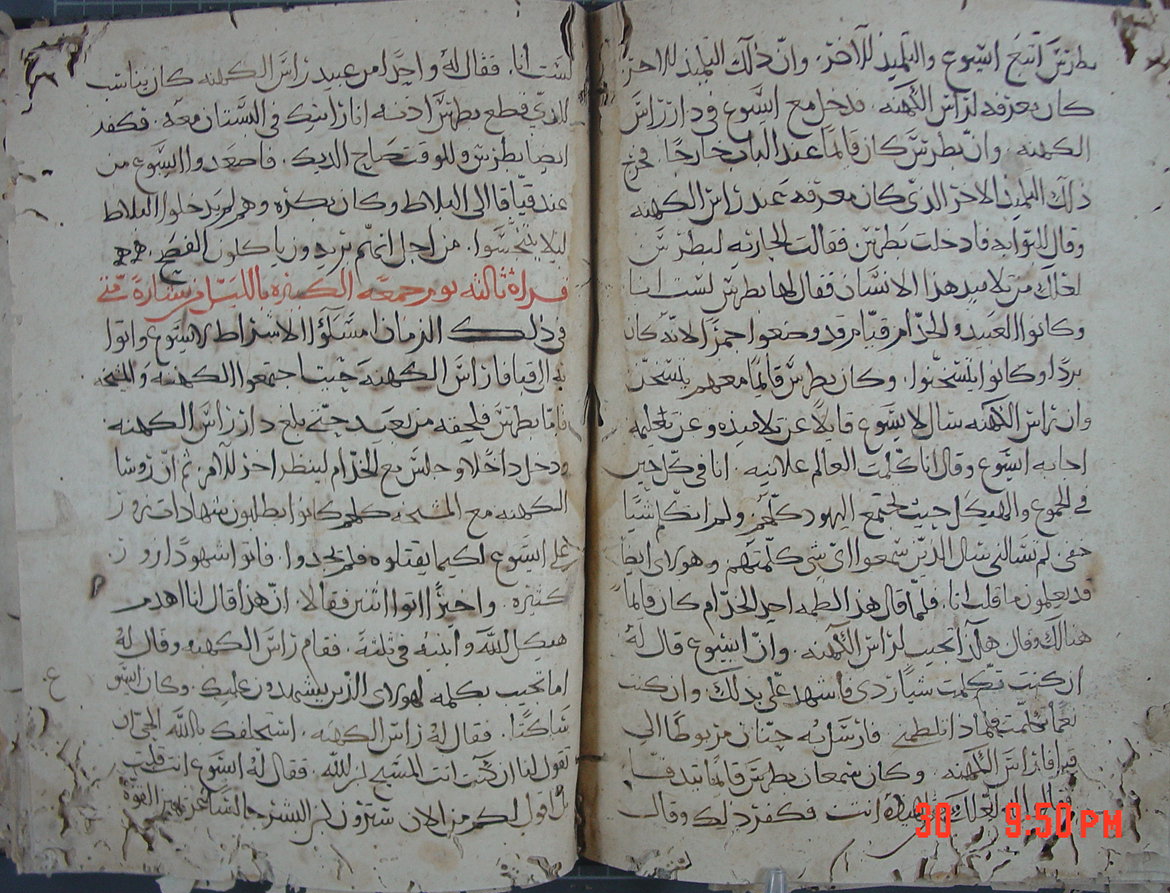 بطرس اتبع ايسوع والتلميذ للاخر. وان ذلك التلميذ للاخر
كان يعرفه لراس الكهنه. فدخل مع ايسوع في دار راس
الكهنه. وان بطرس كان قايما عند الباب خارجا. فخرج
ذلك التلميذ الاخر الذي كان معرفه عند راس الكهنه
وقال للبوابه فادخلت بطرس فقالت الجاريه لبطرس
لعلك من تلاميذ هذا الانسان فقال لها بطرس لست انا
وكانوا العبيد والخدام قيام قد وضعوا جمرا لانه كان
بردا وكانوا ليتسخنوا. وكان بطرس قايما معهم يتسخن
وان راس الكهنه سال لايسوع قايلا عن تلاميذه وعن تعليمه
اجابه ايسوع وقال انا كلمت العالم علانيه. انا في كل حين
في الجموع والهيكل حيث تجتمع اليهود كلهم ولم اتكلم شيا
خفي لم تسالني سال الذين سمعوا اي شي كلمتهم وهولاي ايضا
قد يعلمون ما قلت انا. فلما قال هذا لطمه احد الخدام كان قايما
هنالك وقال هكذا تجيب لراس الكهنه. وان ايسوع قال له
ان كنت تكلمت شيا ردي فاشهد علي بذلك وان كنت
نعما تكلمت فلماذا تلطمني فارسل به حنان مربوطا الي
قيافا راس الكهنه. وكان سمعان بطرس قايما يتدفا
انت فكفر ذلك وقال
لست انا. فقال له واحدا من عبيد راس الكهنه كان يناسب
للذي قطع بطرس اذنه انا رايتك في البستان معه. فكفر
ايضا بطرس وللوقت صاح الديك. فاصعدوا اليسوع من
عند قيافا الى البلاط وكان بكره وهم لم يدخلوا البلاط
ليلا يتنجسوا. من اجل انهم يريدون ياكلون الفصح
قراة ثالثه يوم جمعه الكبيره بالليل من بشارة متي
في ذلك الزمان امسكوا الاشراط لايسوع واتوا
به الي قيافا راس الكهنه حيث اجتمعوا الكهنه والمشيخه
فاما بطرس فلحقه من بعيد حتى بلغ دار راس الكهنه
ودخل داخلا وجلس مع الخدام لينظر اخر للامر. ثم ان روسا
الكهنه مع المشيخه كلهم كانوا يطلبون شهادات زور
علي ايسوع لكيما يقتلوه فلم يجدوا. فاتوا شهودا زور
كثيره. واخيرا اتوا اثنين فقالا. ان هذا قال انا اهدم
هيكل الله وابنيه في ثلثه. فقام راس الكهنه وقال له
اما تجيب بكلمه لهولاي الذين يشهدون عليك. وكان ايسوع
ساكتا. فقال له راس الكهنه. استحلفك بالله الحي ان
تقول لنا ان كنت انت المسيح ابن لله. فقال له ايسوع انت قلت
بل اقول لكم من الان سترون لابن البشر جالسا عن يمين القوة
30 9:50 PM